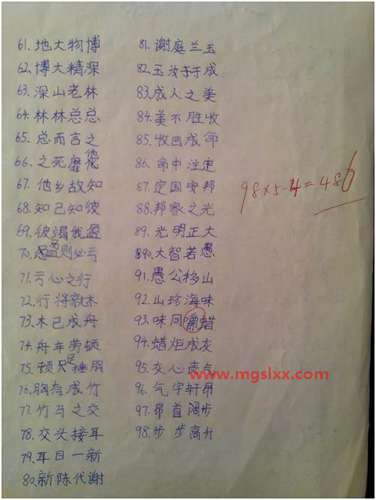 61. 地大物博
62. 博大精深
63. 深山老林
64. 林林总总
65. 总而言之
66. 之死靡他
67. 他乡故知
68. 知己知彼
69. 彼竭我盈
70. 盈则必亏
71. 亏心之行
72. 行将就木
73. 木已成舟
74. 舟车劳顿
75. 顿足捶胸
76. 胸有成竹
77. 竹马之交
78. 交头接耳
79. 耳目一新
80. 新陈代谢
81. 谢庭兰玉
82. 玉汝于成
83. 成人之美
84. 美不胜收
85. 收回成命
86. 命中注定
87. 定国安邦
88. 邦家之光
89. 光明正大
90. 大智若愚
91. 愚公移山
92. 山珍海味
93. 味同嚼蜡
94. 蜡炬成灰
95. 灰心丧气
96. 气宇轩昂
97. 昂首阔步
98. 步步高升
98×5-4=486
www.mgslxx.com